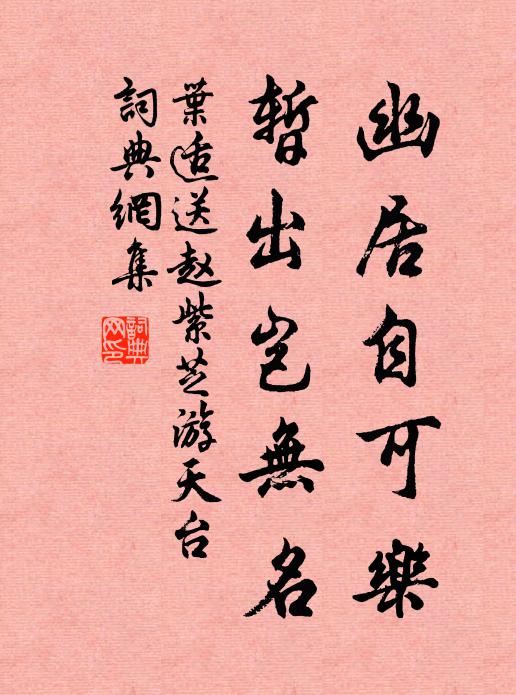 幽居自可樂
暫出豈無名
葉适送赵紫芝游天台
詞典網集
詞典
网印